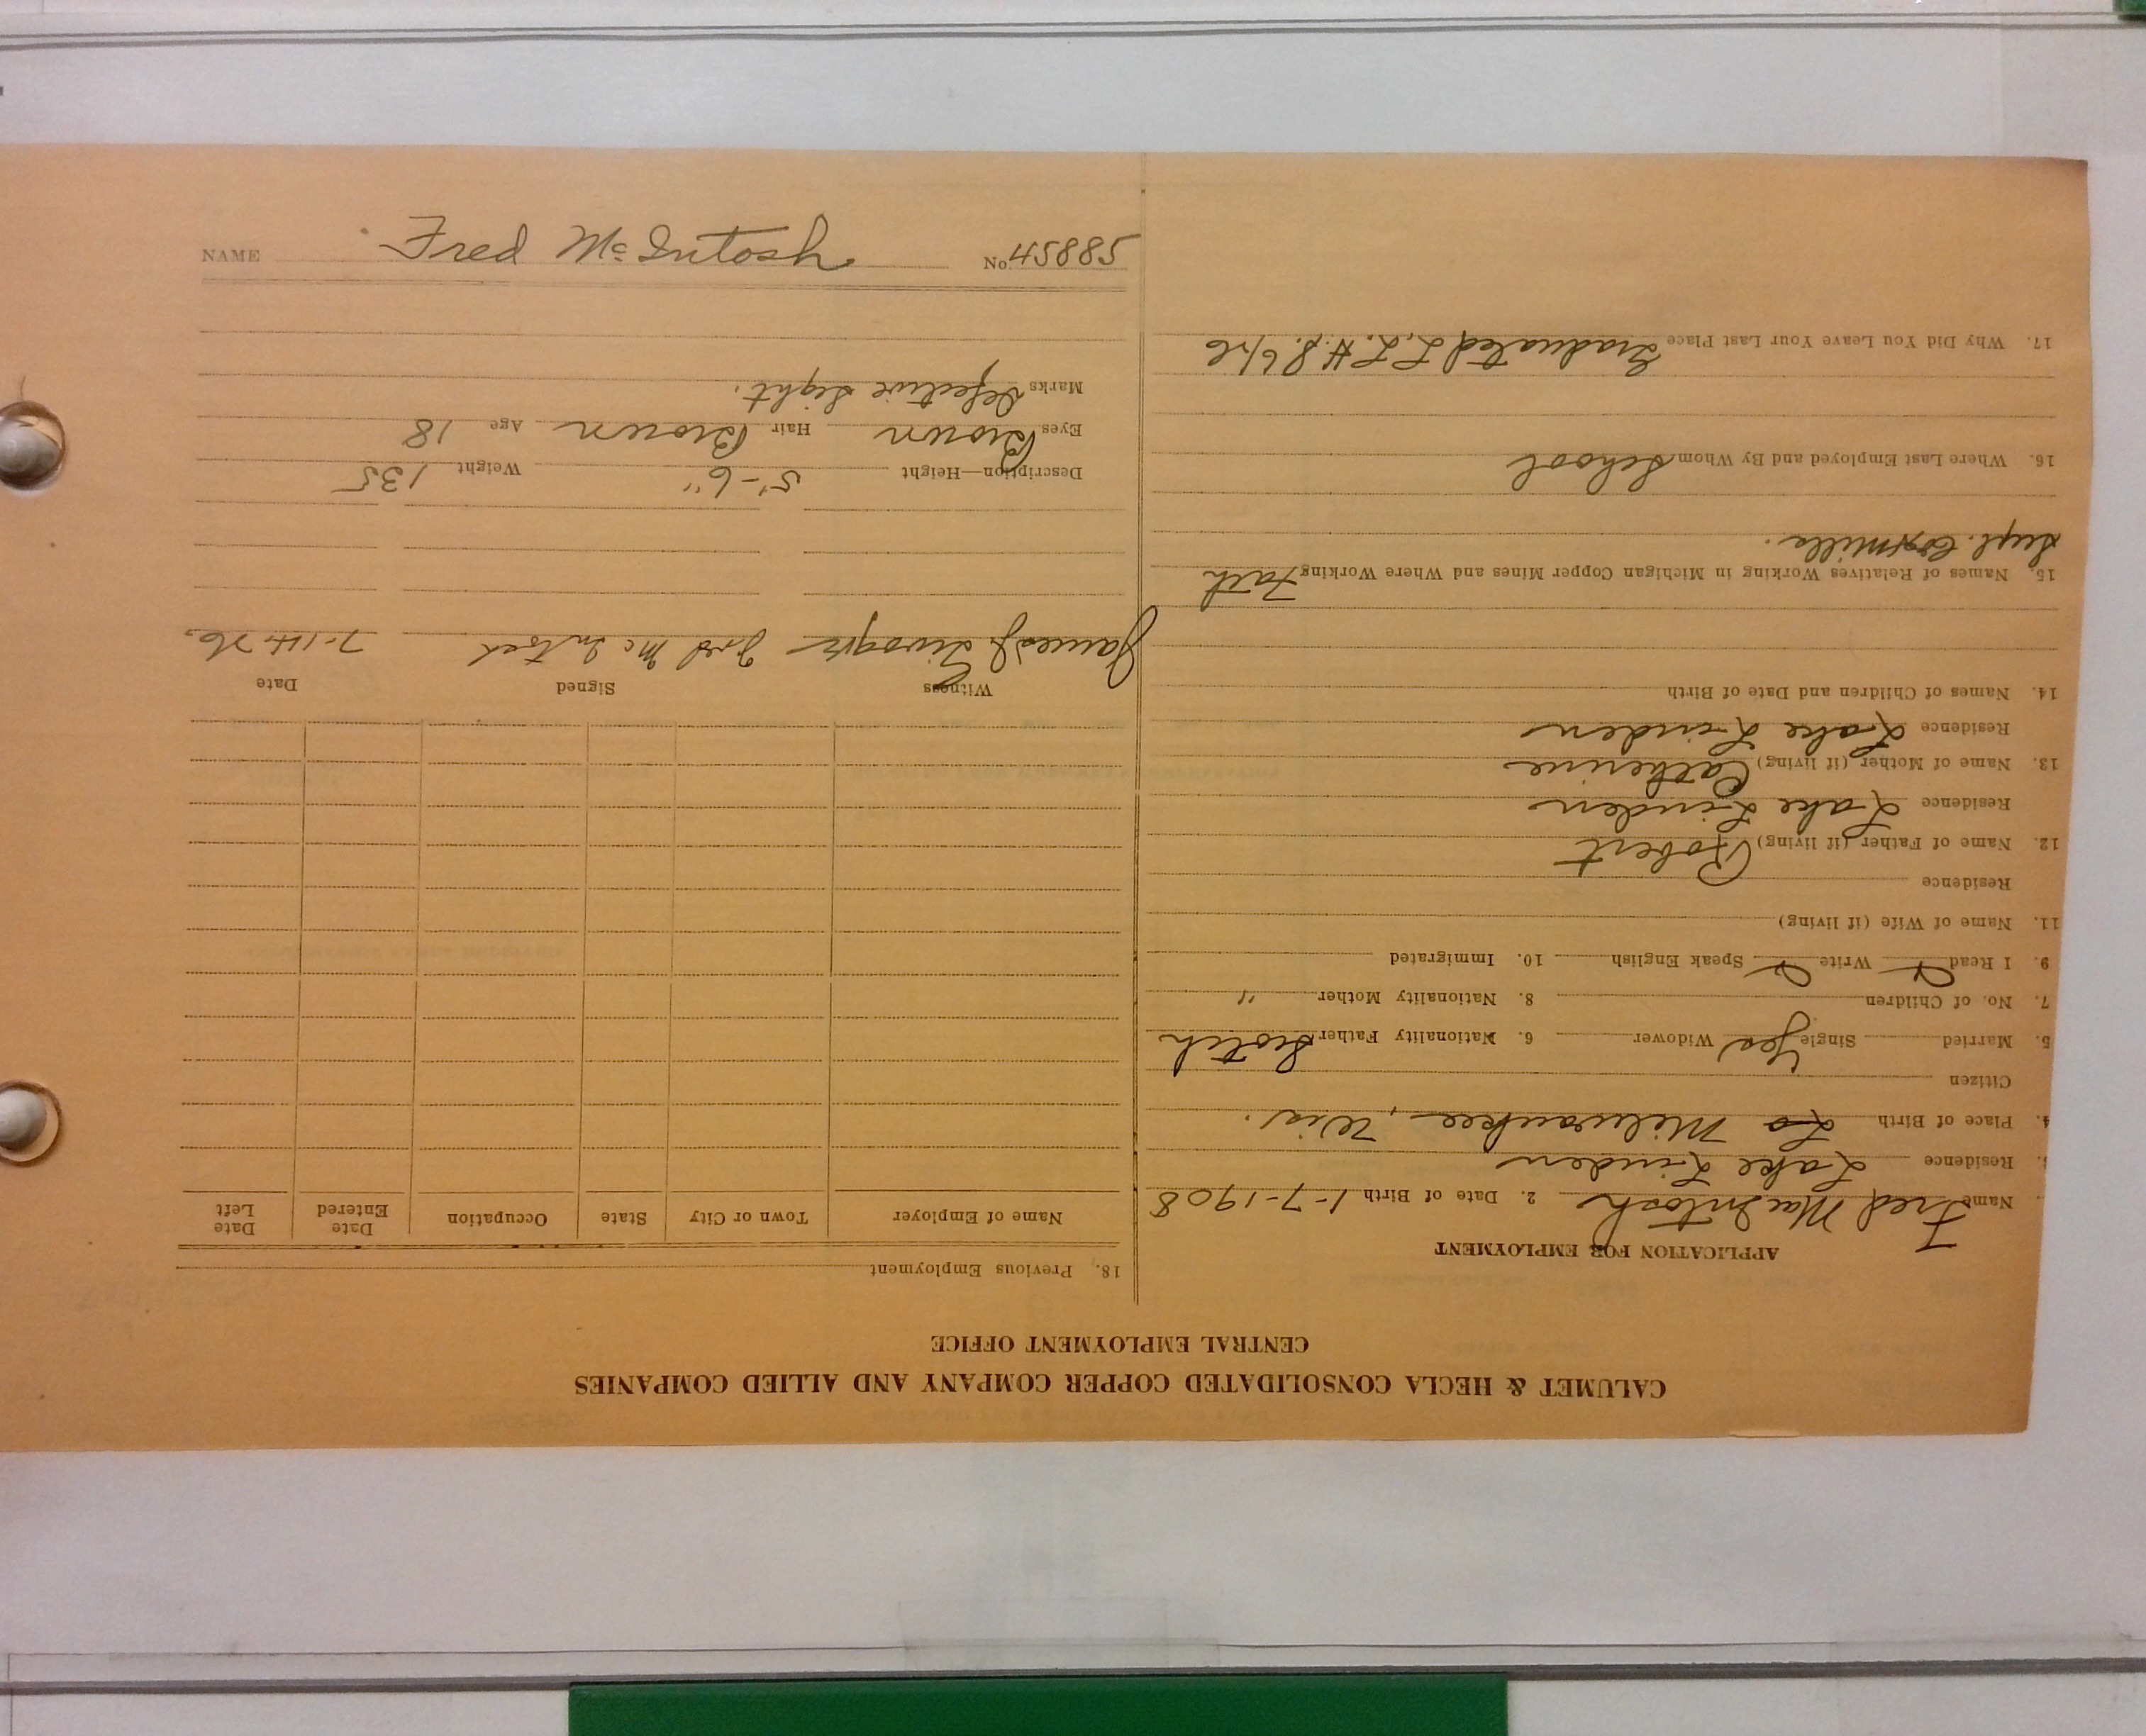 CALUMET & HECLA CONSOLIDATED COPPER COMPANY AND ALLIED COMPANIES
CENTRAL EMPLOYMENT OFFICE
APPLICATION FOR EMPLOYMENT
Name Fred MacIntosh 2. Date of Birth 1-7-1908
Residence Lake Linden
4. Place of Birth Milwaukee, Wis.
Citizen
5. Married Single Yes Widower 6. Nationality Father Scotch
7. No. of Children 8. Nationality Mother "
9. I Read Write Speak English 10. Immigrated
11. Name of Wife (if living)
Residence
12. Name of Father (if living) Robert
Residence Lake Linden
13. Name of Mother (if living) Catherine
Residence Lake Linden
14. Names of Children and Date of Birth
15. Names of Relatives Working in Michigan Copper Mines and Where Working Fath
Supt. mills.
16. Where Last Employed and By Whom School
17. Why Did You Leave Your Last Place Graduated L. L. H. S. 6/26
18. Previous Employment
Name of Employer Town or City State Occupation Date Entered Date Left
Witness Signed Date
James J. Fred McIntosh 7-14-26.
Description—Height 5'-6" Weight 135
Eyes Brown Hair Brown Age 18
Marks Defective Sight.
NAME Fred McIntosh No. 58854